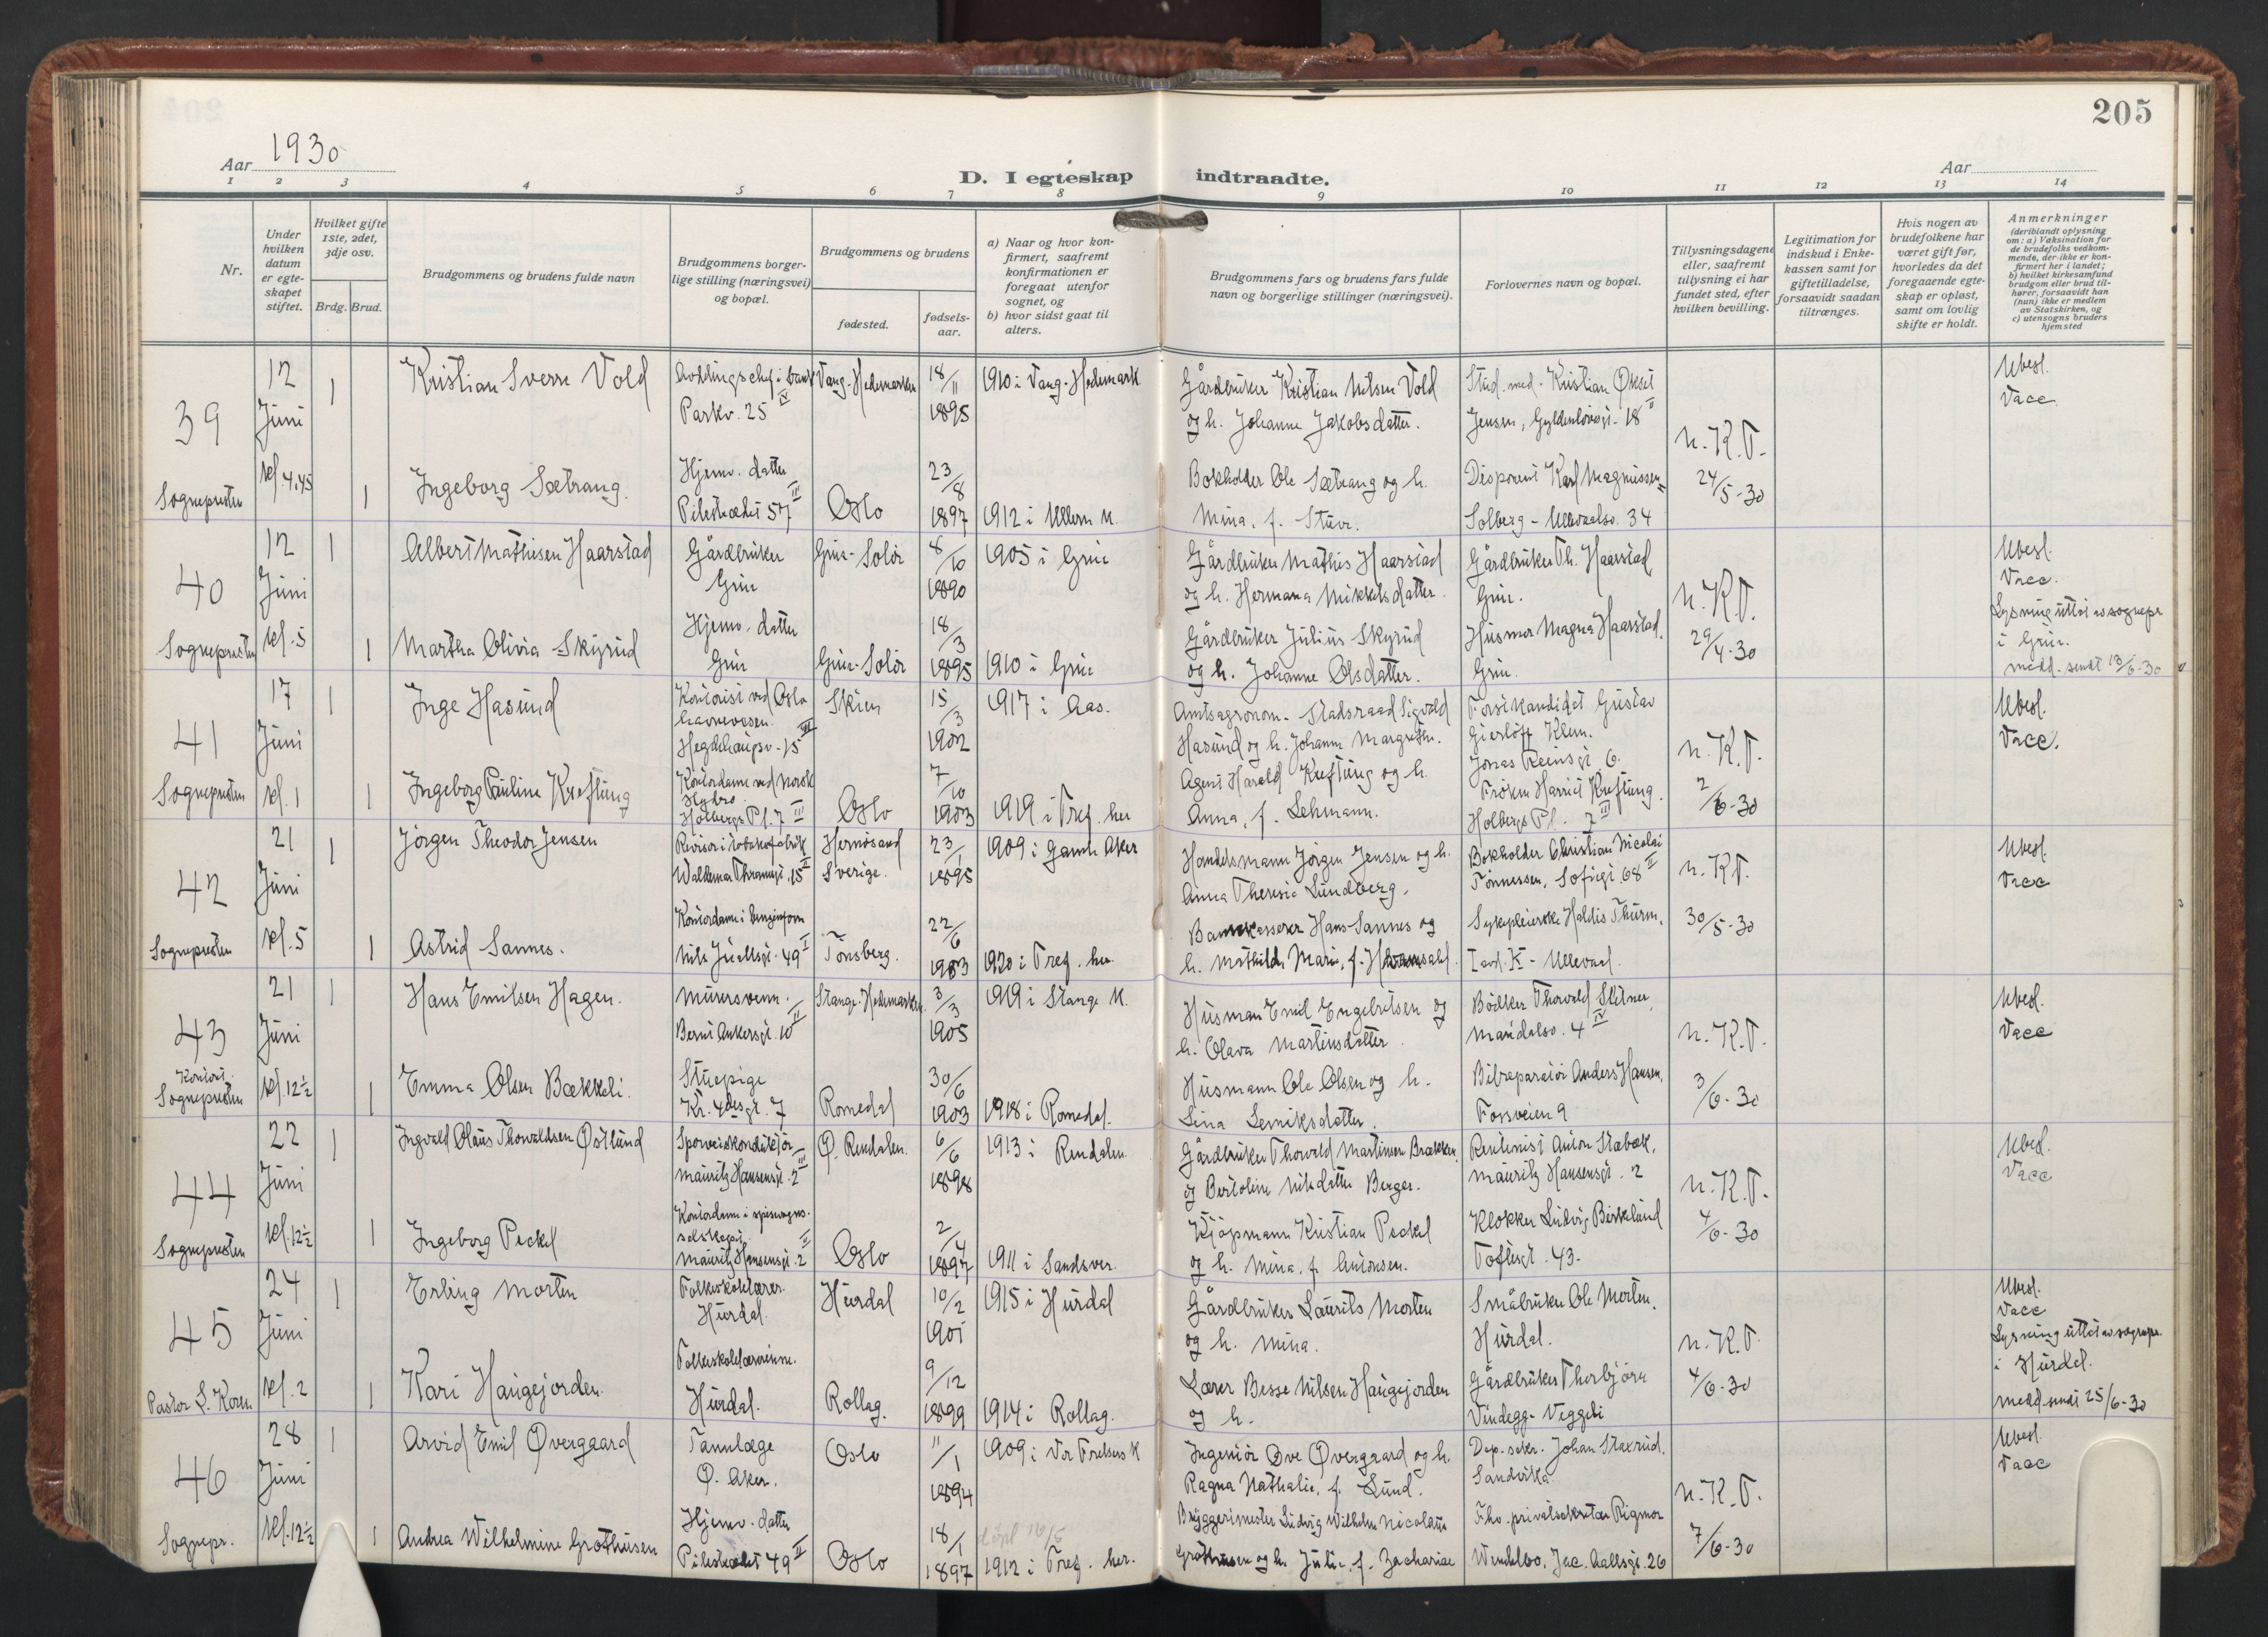 205
Aar 1930
D. I egteskap indtraadte.
Aar
1 2 3 4 5 6 7 8 9 10 11 12 13 14
Nr.
Under hvilken datum er egteskapet stiftet.
Hvilket gifte 1ste, 2det, 3dje osv.
Brdg. Brud.
Brudgommens og brudens fulde navn
Brudgommens borgerlige stilling (næringsvei) og bopæl.
Brudgommens og brudens
fødested.
fødselsaar.
a) Naar og hvor konfirmert, saafremt konfirmationen er foregaat utenfor sognet, og
b) hvor sidst gaat til alters.
Brudgommens fars og brudens fars fulde navn og borgerlige stillinger (næringsvei).
Forlovernes navn og bopæl.
Tillysningsdagene eller, saafremt tillysning ei har fundet sted, efter hvilken bevilling.
Legitimation for indskud i Enkekassen samt for giftetilladelse, forsaavidt saadan tiltrænges.
Hvis nogen av brudefolkene har været gift før, hvorledes da det foregaaende egteskap er opløst, samt om lovlig skifte er holdt.
Anmerkninger
(deriblandt oplysning om: a) Vaksination for de brudefolks vedkommende, der ikke er konfirmert her i landet; b) hvilket kirkesamfund brudgom eller brud tilhører, forsaavidt han (hun) ikke er medlem av Statskirken, og c) utensogns bruders hjemsted
39 Sognepresten
12 Juni kl. 4.45
1 Kristian Sverre Vold
Avdelingschef i bank Parkv. 25 IV
Vang-Hedemarken 18/11 1895
1910 i Vang-Hedemark.
Gårdbruker Kristian Nilsen Vold
og h. Johanne Jakobsdatter.
Stud. med. Kristian Økset
Jensen, Gyldenløvesgt. 18 II
n. K. T. 24/5-30
Ubesl. Vacc.
1 Ingeborg Sætrang.
Hjemv. datter Pilestrædet 57 III
Oslo 23/8 1897
1912 i Ullern K.
Bokholder Ole Sætrang og h.
Mina, f. Stuvr.
Disponent Karl Magnussen
Solberg - Ullevaalsv. 34
40 Sognepresten
12 Juni kl. 5
1 Albert Mathisen Haarstad
Gårdbruker Grue
Grue-Solør 8/10 1890
1905 i Grue
Gårdbruker Mathis Haarstad
og h. Hermana Mikkelsdatter.
Gårdbruker Th. Haarstad,
Grue.
n. K. T. 29/4-30
Ubesl. Vacc.
Lysning uttat av sognepr.
i Grue.
medd. sendt 13/6-30
1 Martha Olivia Skyrud
Hjemv. datter Grue
Grue-Solør 18/3 1895
1910 i Grue
Gårdbruker Julius Skyrud
og h. Johanne Olsdatter.
Husmor Magna Haarstad.
Grue.
41 Sognepresten
17 Juni kl. 1
1 Inge Hasund
Kontorist ved Oslo havnevesen. Hegdehaugsv. 15 III
Skien 15/3 1902
1917 i Aas.
Amtsagronom - Stadsraad Sigvald
Hasund og h. Johanne Margrethe.
Forstkandidat Gustav
Gierløff Klem.
Jonas Reinsgt. 6.
n. K. T. 2/6-30
Ubesl. Vacc.
1 Ingeborg Pauline Kreftung
Kontordame ved Norsk Hydro Holbergs Pl. 7 III
Oslo 7/10 1903
1919 i Tref. her
Agent Harald Kreftung og h.
Anna, f. Lehmann.
Frøken Harriet Kreftung.
Holbergs Pl. 7 III
42 Sognepresten
21 Juni kl. 5
1 Jørgen Theodor Jensen
Revisor i tobakkfabrik Waldemar Thranesgt. 15 II
Hernøsand Sverige. 23/1 1895
1909 i Gamle Aker
Handelsmann Jørgen Jensen og h.
Anna Theresia Lundberg.
Bokholder Christian Nicolai
Tønnessen, Sofiegt. 68 II
n. K. T. 30/5-30
Ubesl. Vacc
1 Astrid Sannes.
Kontordame i Nils Juelsgt. 49 I
Tønsberg. 22/6 1903
1920 i Tref. her.
Bankkasserer Hans Sannes og
h. Mathilde Marie, f.
Sykepleierske Haldis Thurm.
I avd. K - Ullevaal.
43 Kontoret Sognepresten
21 Juni kl. 12½
1 Hans Emilsen Hagen.
Murersvenn. Bernt Ankersgt. 10 II
Stange-Hedemarken 3/3 1905
1919 i Stange K.
Husman Emil Engebretsen og
h. Olava Martinsdatter.
Bødker Thorvald Slitner,
Maridalsv. 4 IV
n. K. T. 3/6-30
Ubesl. Vacc
1 Emma Olsen Bækkeli.
Stuepige Kr. 4des gt. 7
Romedal 30/6 1903
1918 i Romedal.
Husmann Ole Olsen og h.
Lina Lemiksdatter.
Bilreparatør Anders Hansen,
Fossveien 9
44 Sognepresten
22 Juni kl. 12½
1 Ingvald Olaus Thorvaldsen Østlund
Sporveiskonduktør Mauritz Hansensgt. 2 III
Ø. Rendalen. 6/6 1898
1913 i Rendalen
Gårdbruker Thorvald Martinsen Brækken,
og Bertoline Nilsdatter Berger.
Rentenist Anton Stabæk,
Mauritz Hansensgt. 2
n. K. T. 4/6-30
Ubesl. Vacc
1 Ingeborg Peckel
Kontordame i spisevogns-selskapet. Mauritz Hansensgt. 2 II
Oslo 2/4 1897
1911 i Sandsver.
Kjøpmann Kristian Peckel
og h. Mina, f. Antonsen.
Klokker Ludvig Birkeland
Toftesgt. 43.
45 Pastor L. Koren
24 Juni kl. 2
1 Erling Morten
Folkeskolelærer. Hurdal.
Hurdal 10/2 1901
1915 i Hurdal
Gårdbruker Laurits Morten
og h. Mina.
Småbruker Ole Morten.
Hurdal.
n. K. T. 4/6-30
Ubesl. Vacc
Lysning uttat av sognepr.
i Hurdal.
medd. sendt 25/6-30
1 Kari Haugejorden.
Folkeskolelærerinne. Hurdal.
Rollag. 9/12 1899
1914 i Rollag.
Lærer Besse Nilsen Haugejorden
og h.
Gårdbruker Thorbjørn
Vindegg - Veggeli
46 Sognepr.
28 Juni kl. 12½
1 Arvid Emil Øvergaard
Tannlæge Ø. Aker.
Oslo 11/1 1894
1909 i Vor Frelsers K
Ingeniør Ove Øvergaard og h.
Ragna Nathalie, f. Lund.
Dep. sekr. Johan Staxrud.
Sandvika.
n. K. T. 7/6-30
Ubesl. Vacc
1 Andrea Wilhelmine Grothusen
Hjemv. datter Pilestrædet 49 II
Oslo 18/1 1897
døpt 16/5
1912 i Tref. her.
Bryggerimester Ludvig Wilhelm Nicolaus
Grothusen og h. Julie, f. Zachariae
Fhv. privatsekretær Rigmor
Wendelbo, Jac. Aallsgt. 26